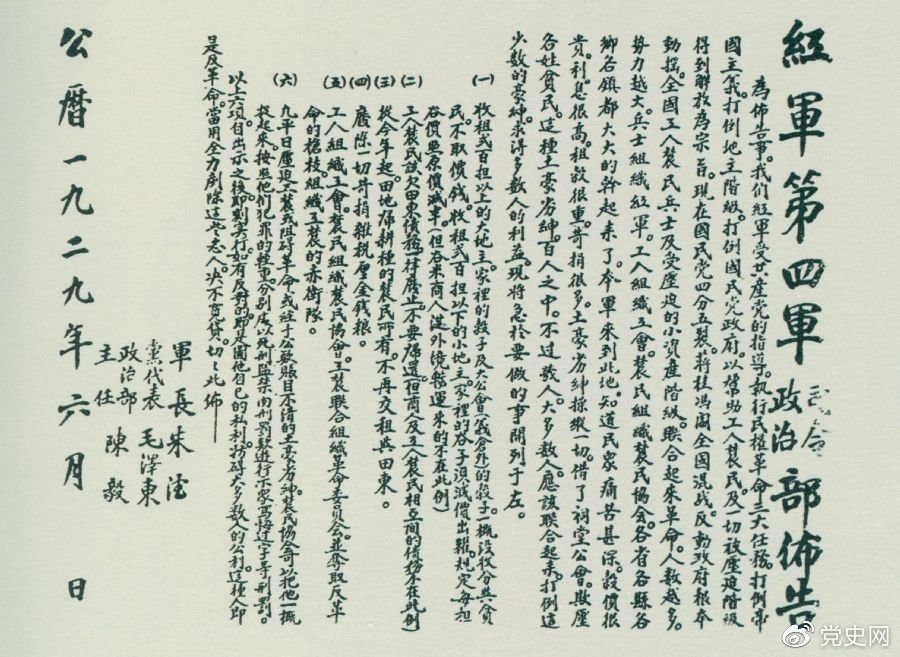 紅軍第四軍司令政治部佈告
為佈告事。我们紅軍受共產党的指導。執行民權革命三大任務。打倒帝
國主義。打倒地主階級。打倒國民党政府。以幫助工人農民及一切被壓迫階級
得到解放為宗旨。現在國民党四分五裂。蔣桂馮閻全國混战。反動政府根本
動摇。全國工人農民兵士及受壓迫的小資產階級。联合起來革命。人数越多。
勢力越大。兵士組織紅軍。工人組織工會。農民組織農民協会。各省各縣各
鄉各鎮都大大的幹起來了。本軍來到此地。知道民衆痛苦甚深。穀價很
貴。利息很高。租穀很重。苛捐很多。土豪劣紳操縱一切。借了祠堂公會。欺壓
各姓貧民。這種土豪劣紳。百人之中。不过数人。大多数人。應該联合起來。打倒這
少数的豪紳。求得多数人的利益。現將急於要做的事開列于左。
(一) 收租弍百担以上的大地主。家裡的穀子及大公會(義倉外)的穀子。一概没收分與貧
民。不取價钱。收租弍百担以下的小地主。家裡的谷子須減價出糶。規定每担
谷價照原價減半。(但谷米商人從外境販運来的不在此例)
(二) 工人農民該欠田東債務。一律廢止。不要歸還。(但商人及工人農民相互間的債務不在此例)
(三) 從今年起。田地歸耕種的農民所有。不再交租與田東。
(四) 廢除一切苛捐雜税厘金錢糧。
(五) 工人組織工會。農民組織農民協會。工農联合組織革命委員会。並奪取反革
命的槍枝組織工農的赤衛隊。
(六) 凡平日壓迫工農或阻碍革命。或经手公款賬目不清的土豪劣紳。農民協會可以把他一概
捉起来。按照他们犯罪的輕重。分别处以死刑監禁肉刑罰款遊行示家寫悔过字等刑罰。
以上六項自出示之後。即刻实行。如有反對的。即是圖他自己的私利。妨碍大多数人的公利。這種人即
是反革命。當用全力剷除這些惡人。决不寬貸。切切此佈
軍長 朱德
黨代表 毛澤東
政治部主任 陳毅
公曆一九二九年六月 日
党史网